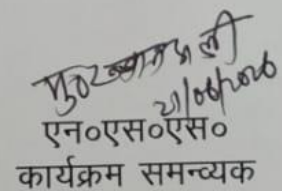 21/06/2026
एन०एस०एस०
कार्यक्रम समन्व्यक